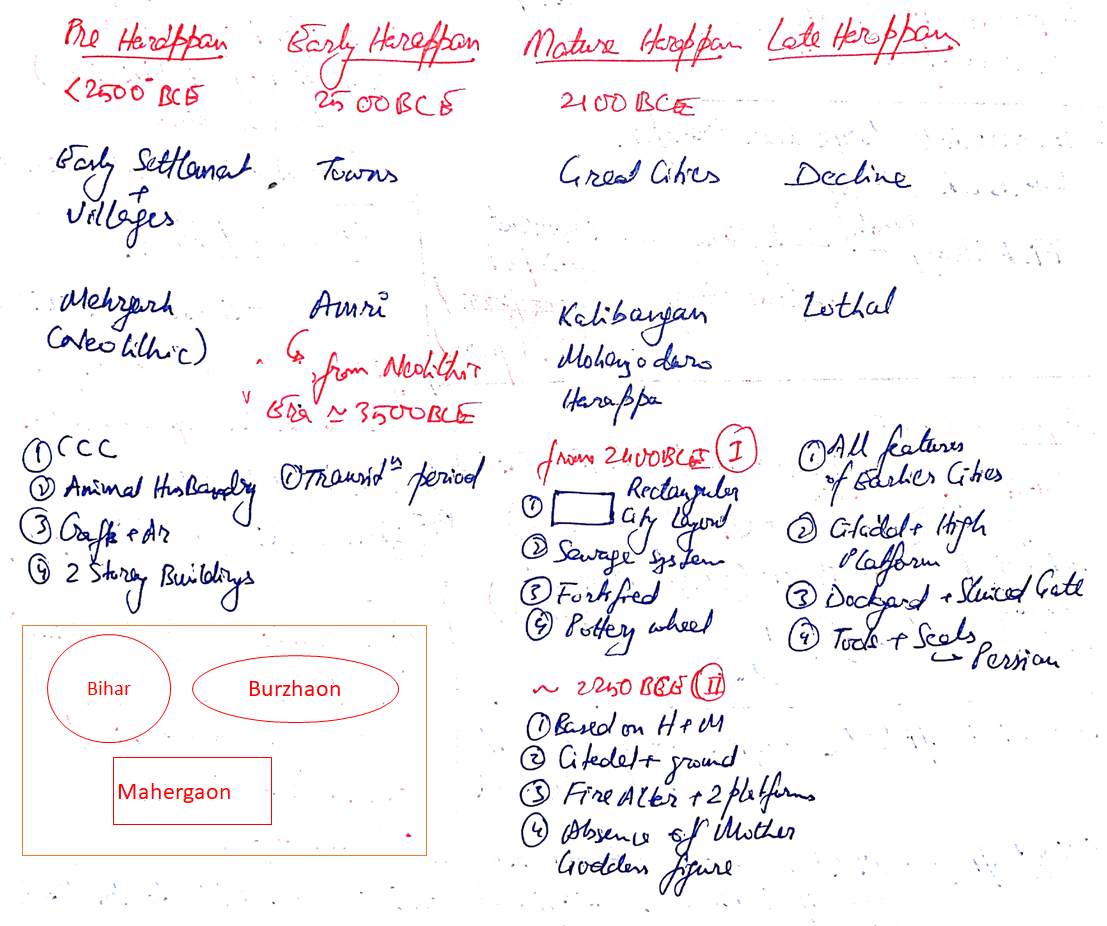 Pre Harappan
Early Harappan
Mature Harappan
Late Harappan
<2500 BCE
2500 BCE
2100 BCE
Early Settlement
+
Villages
Towns
Great Cities
Decline
Mehrgarh
(Neolithic)
Amri
from Neolithic
Era ≃ 3500 BCE
Kalibangan
Mohanjodaro
Harappa
Lothal
① CCC
② Animal Husbandry
③ Craft + Ar
④ 2 Storey Buildings
① Transitⁿ period
from 2400 BCE Ⅰ
① Rectangular
City Layout
② Sewage system
③ Fortified
④ Pottery wheel
~ 2250 BCE Ⅱ
① Based on H + M
② Citadel + ground
③ Fire Alter + 2 platforms
④ Absence of Mother
Goddess figure
① All features
of Earlier Cities
② Citadel + High
Platform
③ Dockyard + Sluiced Gate
④ Tools + Seals
↪ Persian
Bihar
Burzhaon
Mahergaon